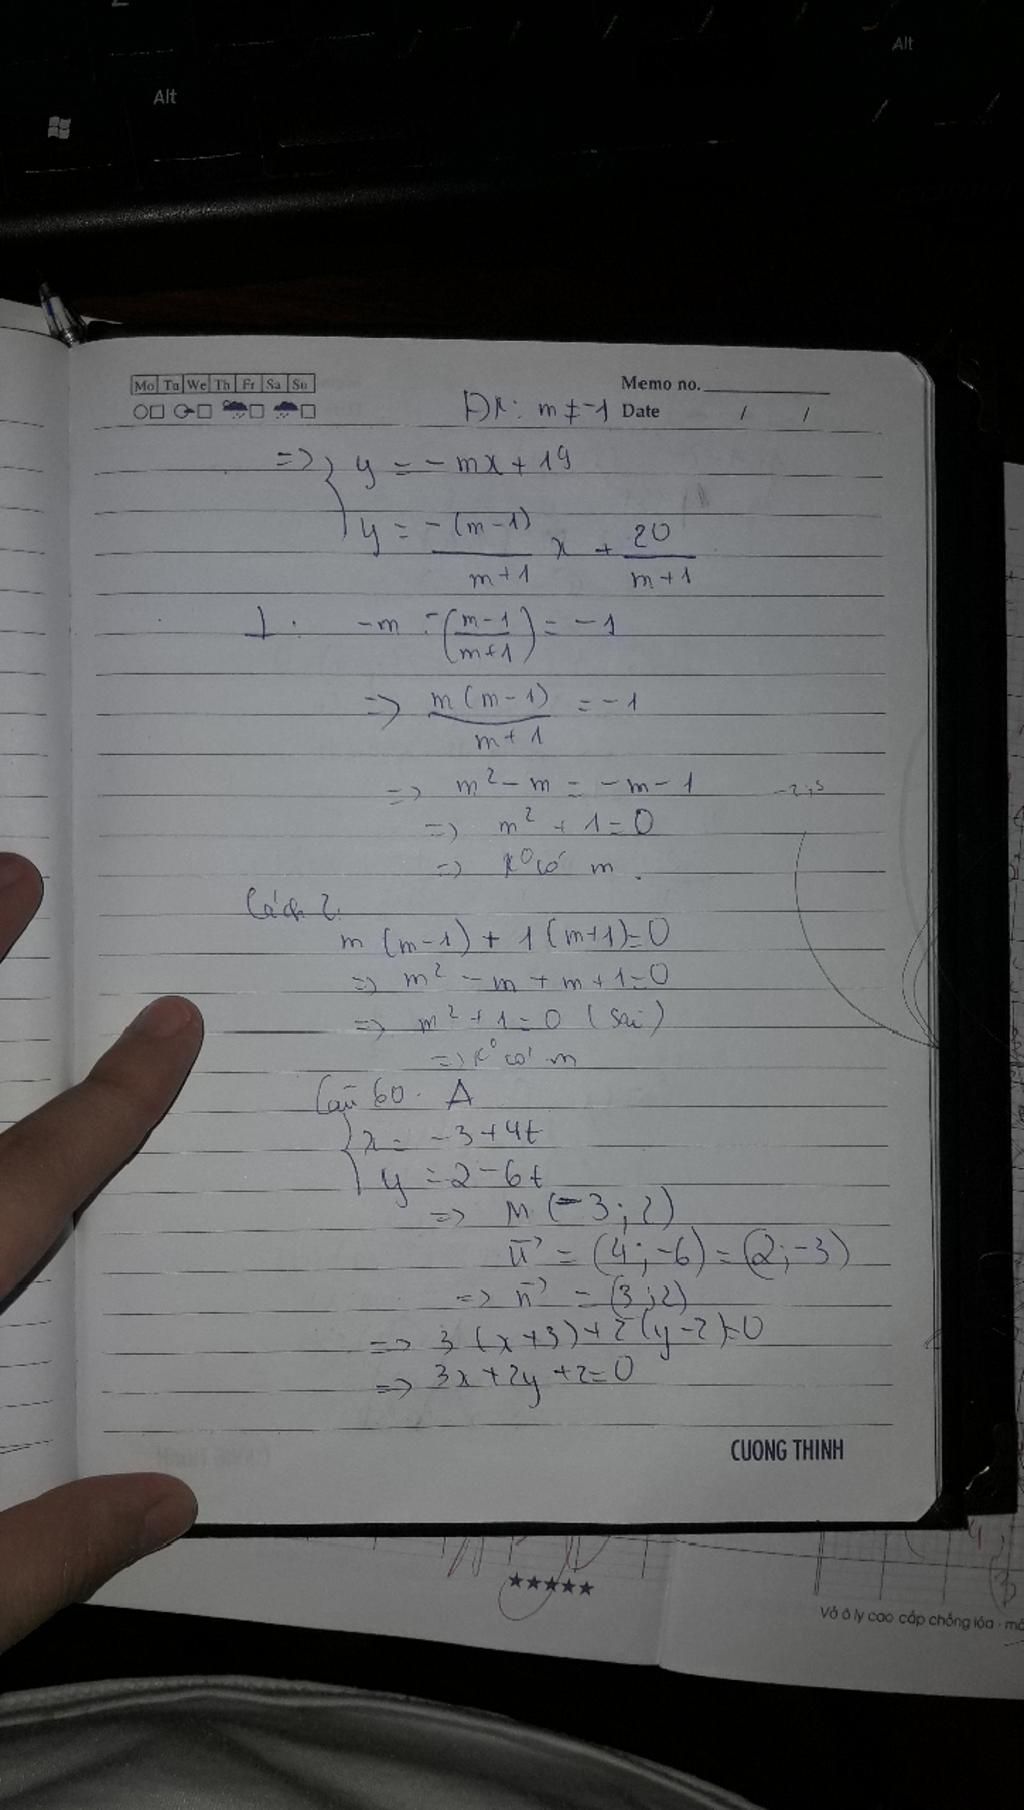 Alt
Alt
Mo Tu We Th Fr Sa Su
Memo no.
Đk: m ≠ -1 Date / /
=> { y = -mx + 19
y = -(m-1)/(m+1) x + 20/(m+1)
⊥: -m · -((m-1)/(m+1)) = -1
=> m(m-1)/(m+1) = -1
=> m² - m = -m - 1
=> m² + 1 = 0
=> k⁰ có m.
Cách 2:
m(m-1) + 1(m+1)=0
=> m² - m + m + 1=0
=> m² + 1 = 0 (sai)
=> k⁰ có m
Câu 60. A
{ x = -3 + 4t
y = 2 - 6t
=> M(-3; 2)
u⃗ = (4; -6) = (2; -3)
=> n⃗ = (3; 2)
=> 3(x+3) + 2(y-2)=0
=> 3x + 2y + 2 = 0
CUONG THINH
★★★★★
Vở ô ly cao cấp chống lóa